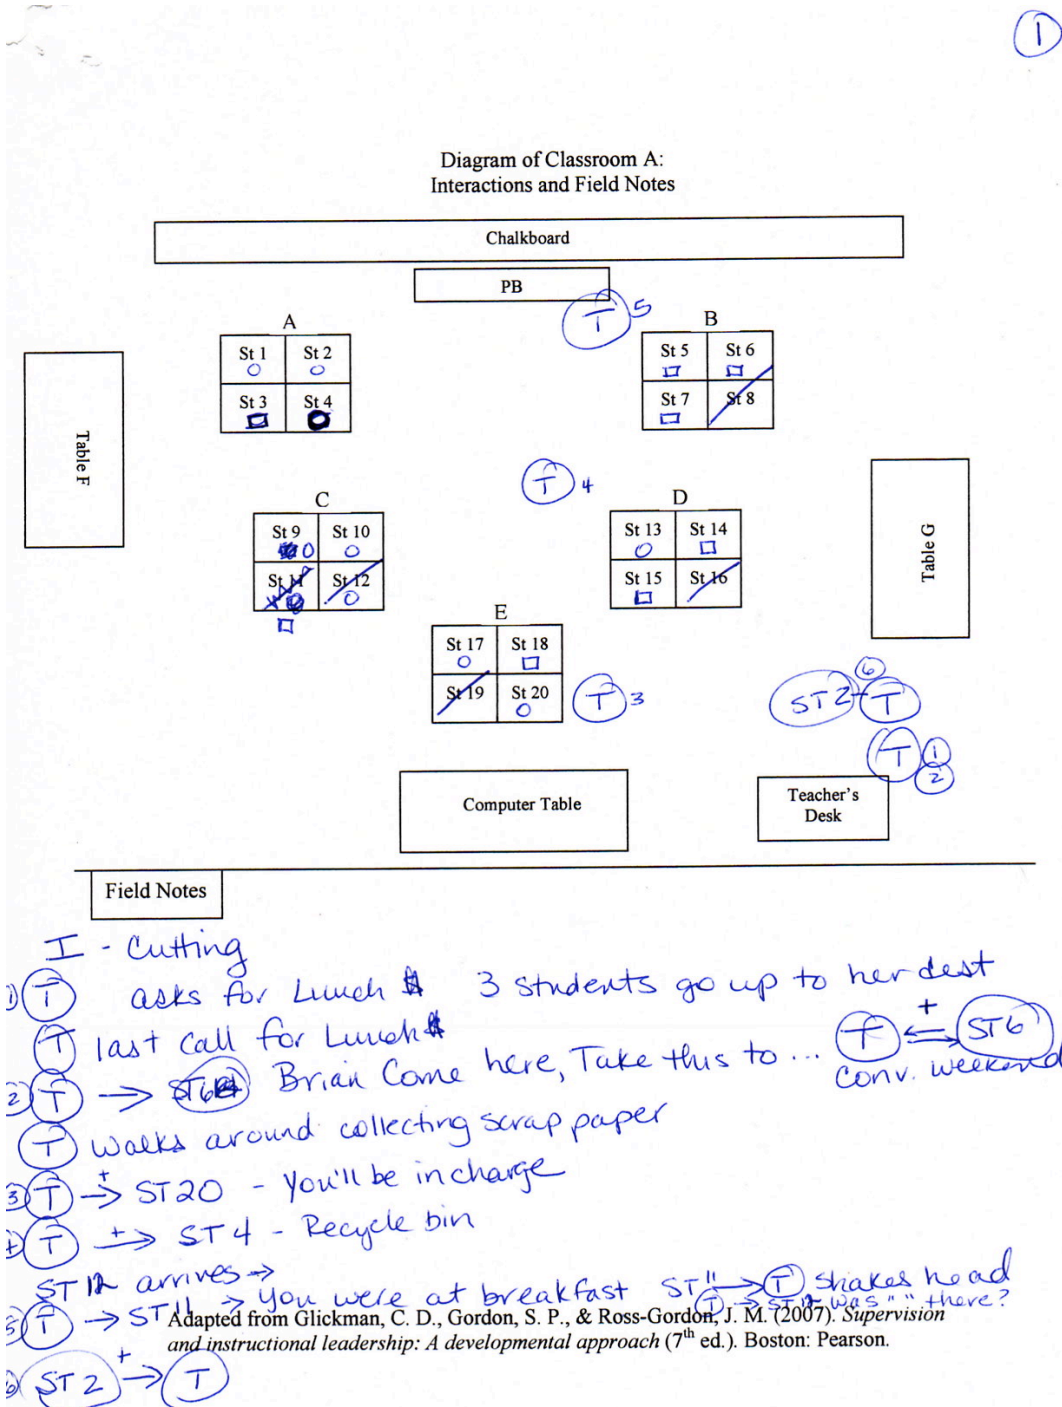 1
Diagram of Classroom A:
Interactions and Field Notes
Chalkboard
PB
T 5
A
St 1 St 2
St 3 St 4
B
St 5 St 6
St 7 St 8
Table F
T 4
C
St 9 St 10
St 11 St 12
D
St 13 St 14
St 15 St 16
Table G
E
St 17 St 18
St 19 St 20
T 3
6
ST2 - T
T 1
2
Computer Table
Teacher's
Desk
Field Notes
I - Cutting
1 T asks for Lunch $ 3 students go up to her dest
T last call for Lunch $
2 T → ST6 Brian Come here, Take this to ... T + ST6
conv. weekend
T walks around collecting scrap paper
3 T + → ST20 - You'll be in charge
4 T + → ST4 - Recycle bin
ST12 arrives →
5 T → ST11 → You were at breakfast ST11 → T shakes head
T → ST12 was " " there?
Adapted from Glickman, C. D., Gordon, S. P., & Ross-Gordon, J. M. (2007). Supervision
and instructional leadership: A developmental approach (7th ed.). Boston: Pearson.
6 ST2 + → T